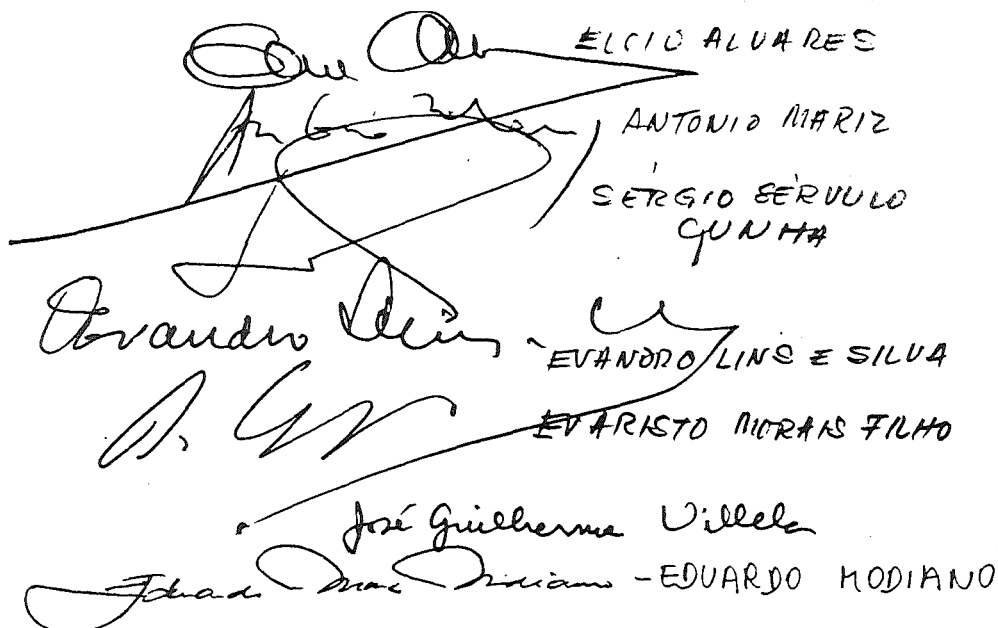 ELCIO ALVARES
ANTONIO MARIZ
SÉRGIO SÉRVULO
CUNHA
Evandro Lins - EVANDRO LINS E SILVA
EVARISTO MORAIS FILHO
José Guilherme Villela
Eduardo Modiano - EDUARDO MODIANO